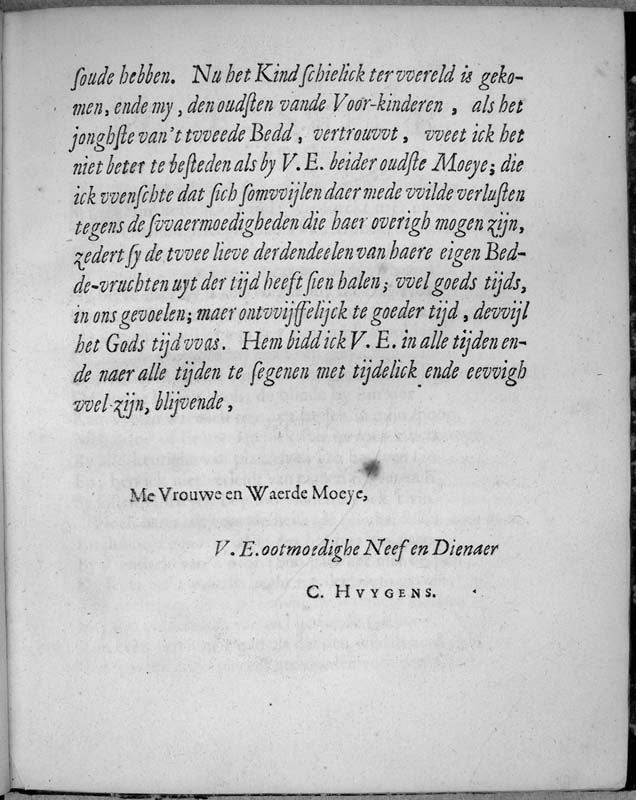 ſoude hebben. Nu het Kind ſchielick ter vvereld is geko-
men, ende my, den oudſten vande Voor-kinderen, als het
jonghſte van't tvveede Bedd, vertrouvvt, vveet ick het
niet beter te beſteden als by V. E. beider oudſte Moeye; die
ick vvenſchte dat ſich ſomvvijlen daer mede vvilde verluſten
tegens de ſvvaermoedigheden die haer overigh mogen zijn,
zedert ſy de tvvee lieve derdendeelen van haere eigen Bed-
de-vruchten uyt der tijd heeft ſien halen; vvel goeds tijds,
in ons gevoelen; maer ontvvijffelijck te goeder tijd, devvijl
het Gods tijd vvas. Hem bidd ick V. E. in alle tijden en-
de naer alle tijden te ſegenen met tijdelick ende eevvigh
vvel-zijn, blijvende,
Me Vrouwe en Waerde Moeye,
V. E. ootmoedighe Neef en Dienaer
C. HVYGENS.